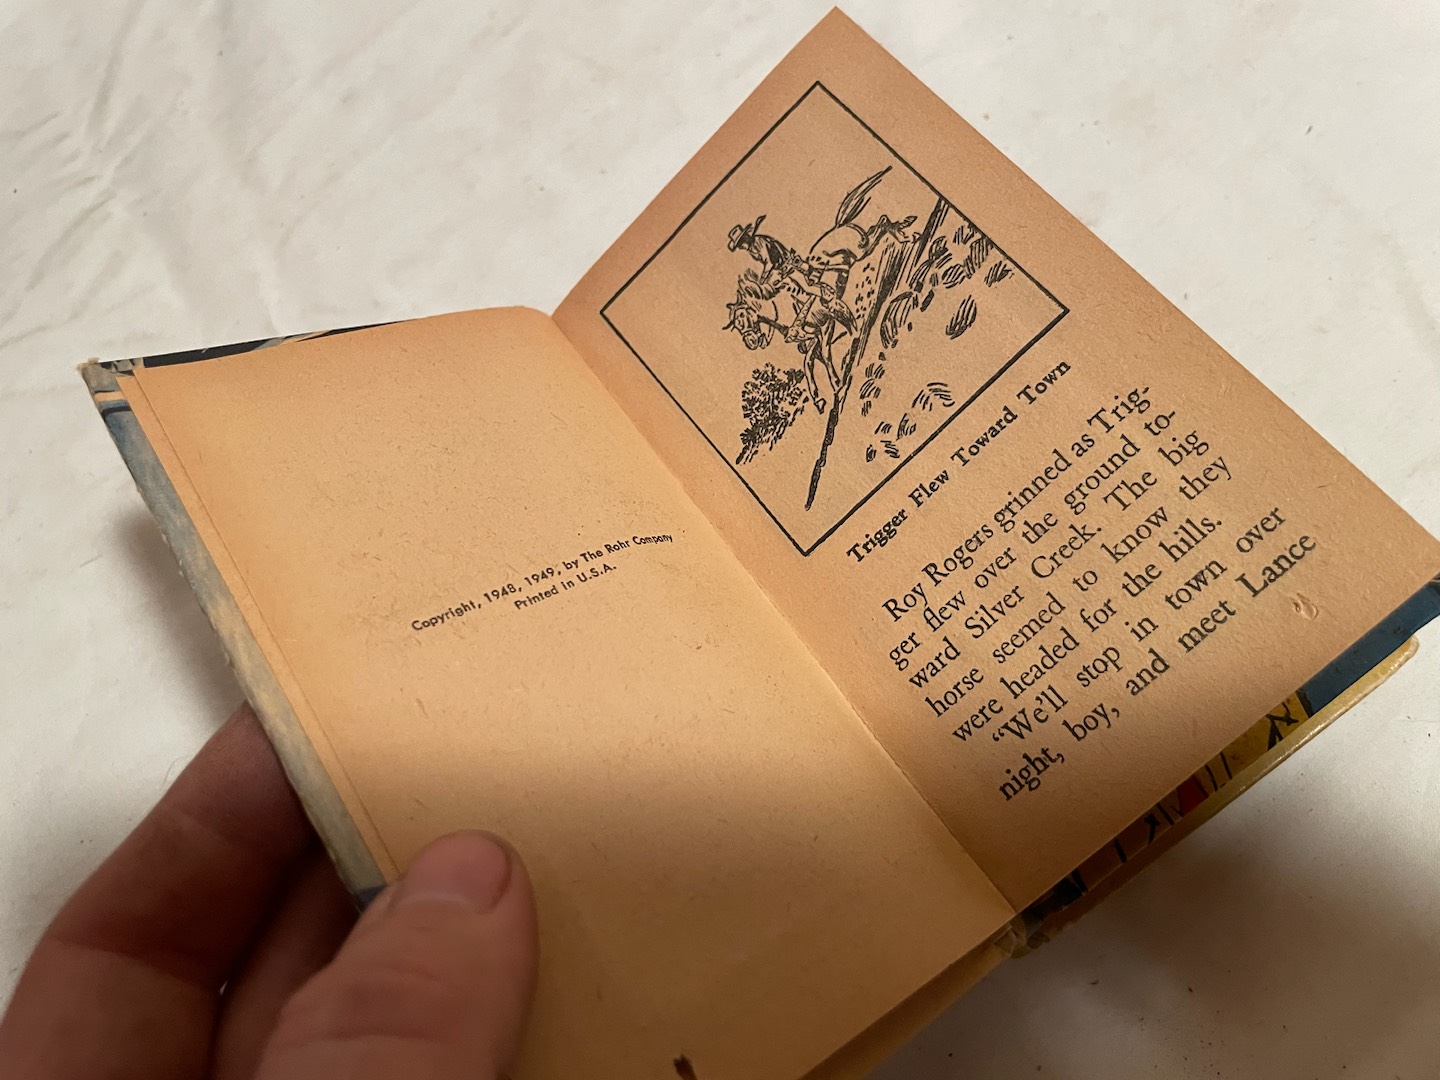 Copyright, 1948, 1949, by The Rohr Company
Printed in U.S.A.
Trigger Flew Toward Town
Roy Rogers grinned as Trig-
ger flew over the ground to-
ward Silver Creek. The big
horse seemed to know they
were headed for the hills.
“We’ll stop in town over
night, boy, and meet Lance